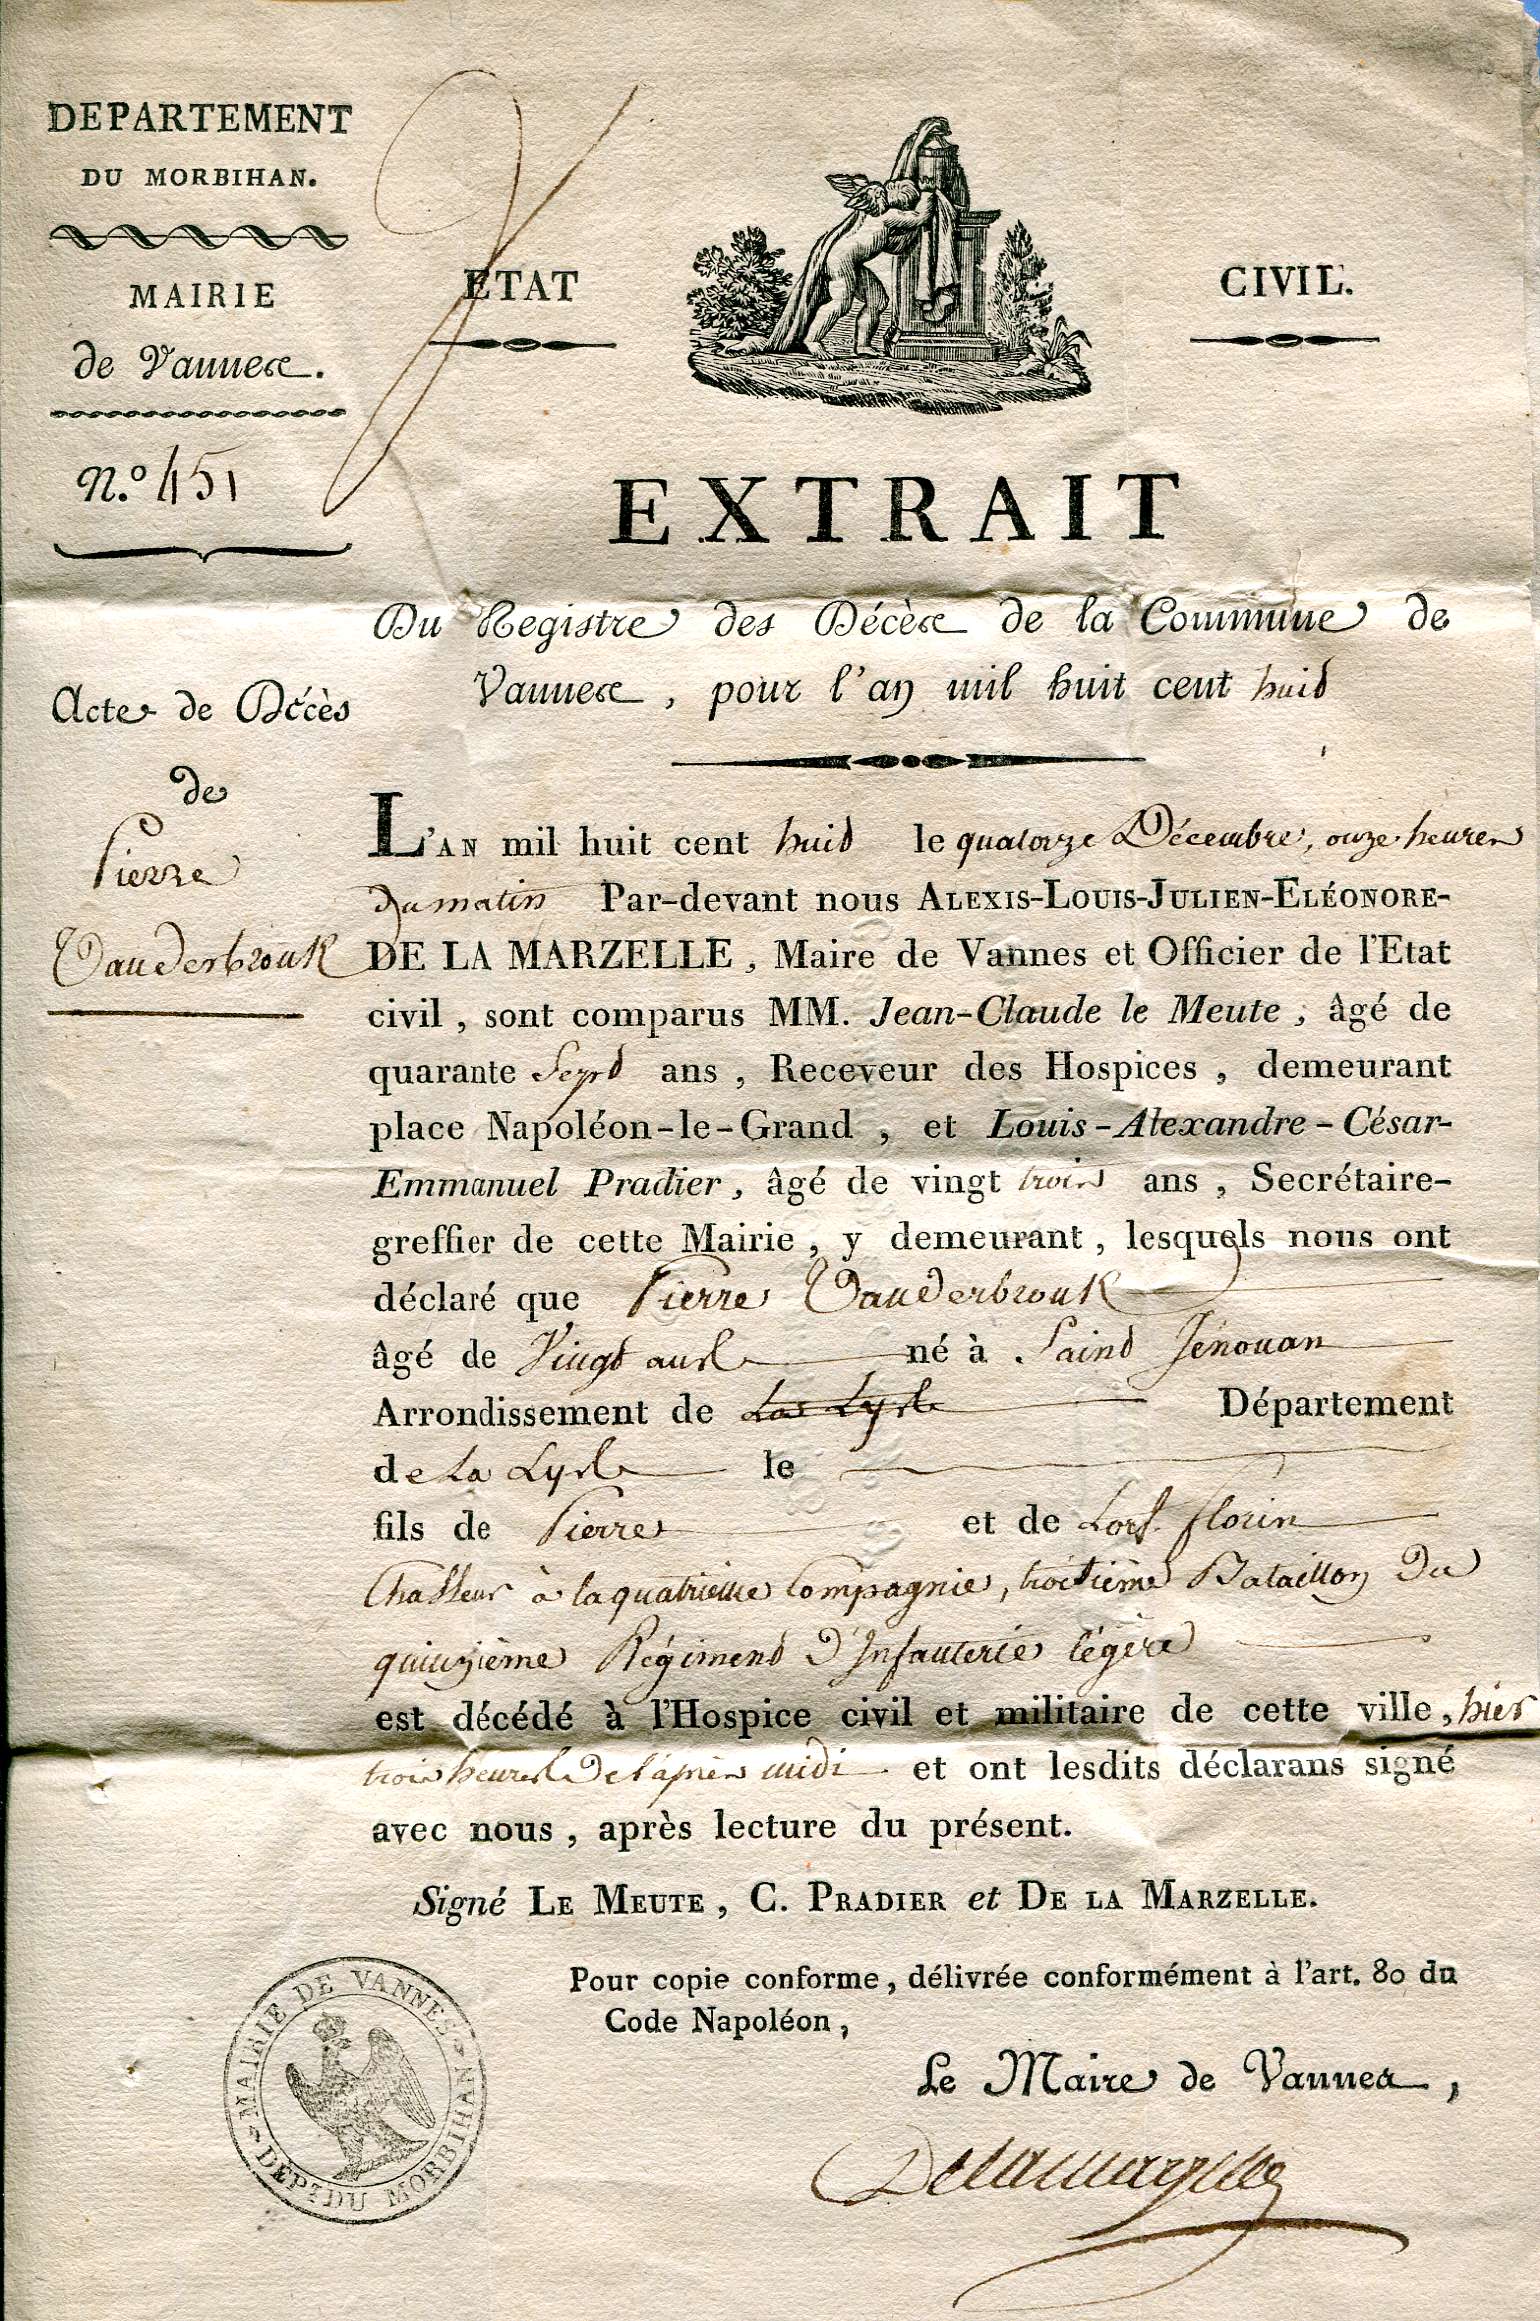 DEPARTEMENT
DU MORBIHAN.
MAIRIE
de Vannes.
N.º 451
ETAT
CIVIL.
EXTRAIT
Du Registre des Décès de la Commune de
Vannes, pour l'an mil huit cent huit
Acte de Décès
de
Pierre
Vanderbrouk
L'AN mil huit cent huit le quatorze Décembre, onze heures
du matin Par-devant nous ALEXIS-LOUIS-JULIEN-ELÉONORE-
DE LA MARZELLE, Maire de Vannes et Officier de l'Etat
civil, sont comparus MM. Jean-Claude le Meute, âgé de
quarante Sept ans, Receveur des Hospices, demeurant
place Napoléon-le-Grand, et Louis-Alexandre-César-
Emmanuel Pradier, âgé de vingt trois ans, Secrétaire-
greffier de cette Mairie, y demeurant, lesquels nous ont
déclaré que Pierre Vanderbrouk
âgé de Vingt ans né à Saint Jénouan
Arrondissement de La Lys Département
de La Lys le
fils de Pierre et de florin
Chasseur à la quatrième Compagnie, troisième Bataillon du
quinzième Régiment d'Infanterie légère
est décédé à l'Hospice civil et militaire de cette ville, hier
trois heures de l'après midi et ont lesdits déclarans signé
avec nous, après lecture du présent.
Signé LE MEUTE, C. PRADIER et DE LA MARZELLE.
Pour copie conforme, délivrée conformément à l'art. 80 du
Code Napoléon,
Le Maire de Vannes,
Delamarzelle
MAIRIE DE VANNES
DEPT DU MORBIHAN